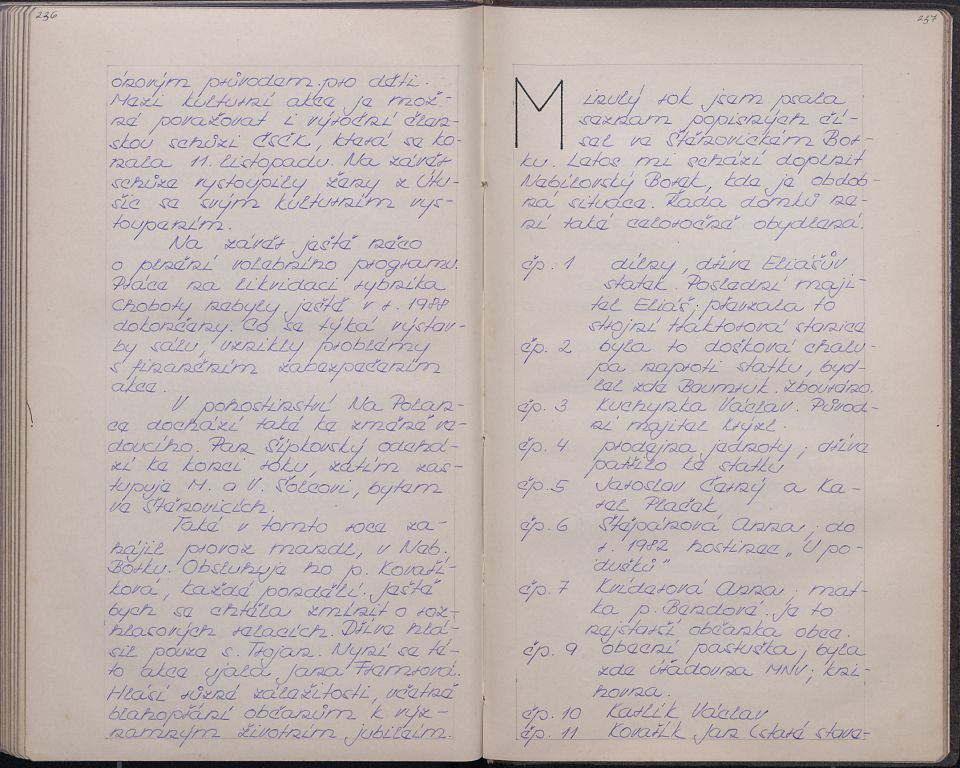 236
ónovým průvodem pro děti.
Mezi kulturní akce je mož-
né považovat i výroční člen-
skou schůzi ČSČK, která se ko-
nala 11. listopadu. Na závěr
schůze vystoupily ženy z Útu-
šic se svým kulturním vys-
toupením.
Na závěr ještě něco
o plnění volebního programu.
Práce na likvidaci rybníka
Choboty nebyly ještě v r. 1988
dokončeny. Co se týká výstav-
by sálu, vznikly problémy
s finančním zabezpečením
akce.
V pohostinství Na Polan-
ce dochází také ke změně ve-
doucího. Pan Šipkovský odchá-
zí ke konci roku, zatím zas-
tupuje M. a V. Šolcovi, bytem
ve Štěnovicích.
Také v tomto roce za-
hájil provoz mandl, v Neb.
Borku. Obsluhuje ho p. Kovaří-
ková, každé pondělí. Ještě
bych se chtěla zmínit o roz-
hlasových relacích. Dříve hlá-
sil pouze s. Trojan. Nyní se té-
to akce ujala Jana Framtová.
Hlásí různé záležitosti, včetně
blahopřání občanům k výz-
namným životním jubileím.
237
Minulý rok jsem psala
seznam popisných čí-
sel ve Štěnovickém Bor-
ku. Letos mi schází doplnit
Nebílovský Borek, kde je obdob-
ná situace. Řada domků ne-
ní také celoročně obydlená.
čp. 1 dílny, dříve Eliášův
statek. Poslední maji-
tel Eliáš; převzala to
strojní traktorová stanice
čp. 2 byla to došková chalu-
pa naproti statku, byd-
lel zde Baumruk. Zbouráno.
čp. 3 Kuchynka Václav. Původ-
ní majitel Krýzl.
čp. 4 prodejna jednoty; dříve
patřilo ke statku
čp. 5 Jaroslav Černý a Ka-
rel Plaček
čp. 6 Štěpánová Anna; do
r. 1982 hostinec „U po-
dušků"
čp. 7 Kníderová Anna; mat-
ka p. Bendové. Je to
nejstarší občanka obce.
čp. 9 obecní pastuška, byla
zde úřadovna MNV; kni-
hovna.
čp. 10 Karlík Václav
čp. 11 Kovařík Jan (staré stave-